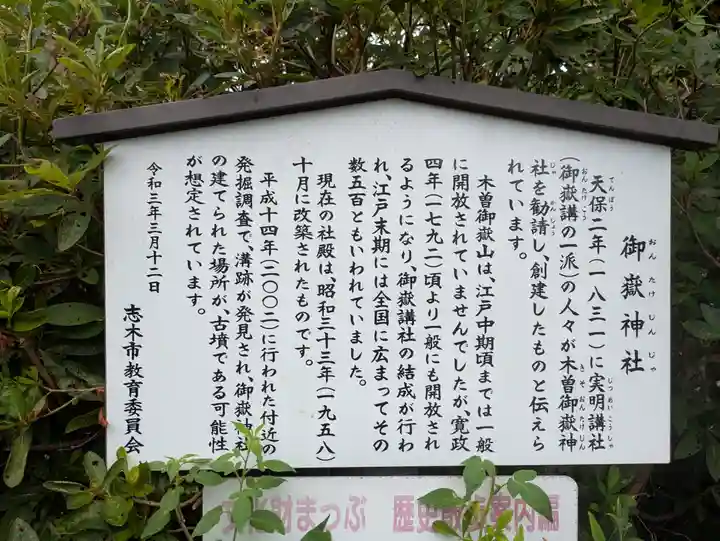 御嶽神社
おんたけじんじゃ
天保二年(一八三一)に実明講社
てんぽう
じつめいこうしゃ
(御嶽講の一派)の人々が木曽御嶽神
おんたけこう
きそおんたけじん
社を勧請し、創建したものと伝えら
じゃ
かんじょう
れています。
木曽御嶽山は、江戸中期頃までは一般
に開放されていませんでしたが、寛政
四年(一七九二)頃より一般にも開放され
るようになり、御嶽講社の結成が行わ
れ、江戸末期には全国に広まってその
数五百ともいわれていました。
現在の社殿は、昭和三十三年(一九五八)
十月に改築されたものです。
平成十四年(二〇〇二)に行われた付近の
発掘調査で、溝跡が発見され、御嶽神社
の建てられた場所が、古墳である可能性
が想定されています。
令和三年三月十二日
志木市教育委員会
文化財まっぷ 歴史散歩案内編